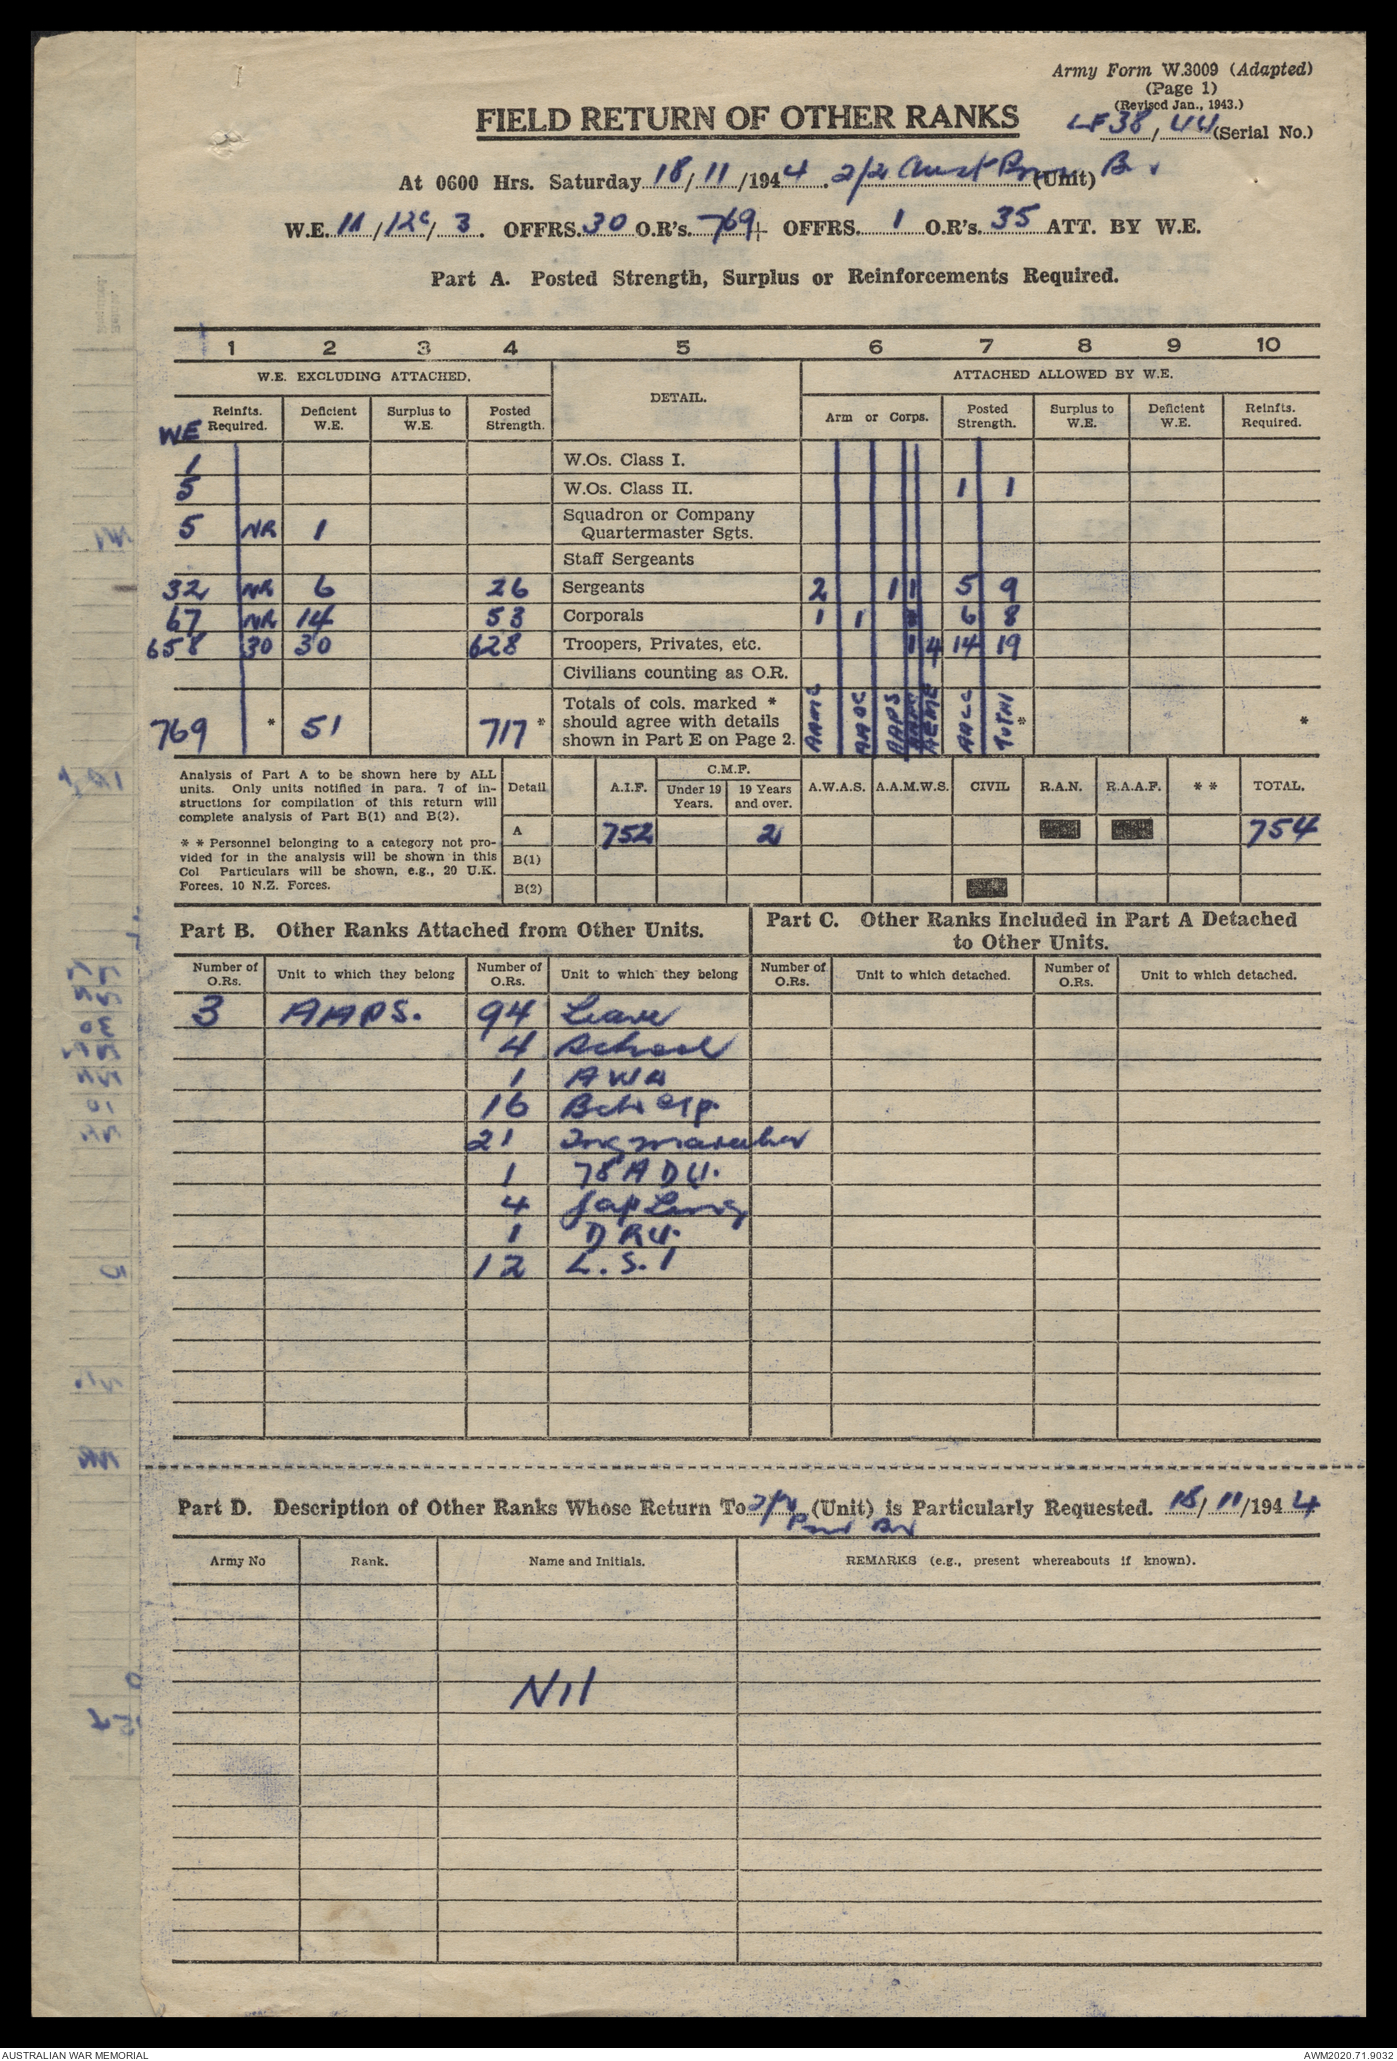 Army Form W.3009 (Adapted)
(Page 1)
(Revised Jan., 1943.)
LF38/44 (Serial No.)
FIELD RETURN OF OTHER RANKS
At 0600 Hrs. Saturday 18/11/1944. 2/2 Aust Pnr (Unit) Bn
W.E. 11/12c/3. OFFRS. 30 O.R's. 769 + OFFRS. 1 O.R's. 35 ATT. BY W.E.
Part A. Posted Strength, Surplus or Reinforcements Required.
1 2 3 4 5 6 7 8 9 10
W.E. EXCLUDING ATTACHED. DETAIL. ATTACHED ALLOWED BY W.E.
WE Reinfts. Required. Deficient W.E. Surplus to W.E. Posted Strength. Arm or Corps. Posted Strength. Surplus to W.E. Deficient W.E. Reinfts. Required.
1 W.Os. Class I.
5 W.Os. Class II. 1 1
5 NR 1 Squadron or Company Quartermaster Sgts.
Staff Sergeants
32 NR 6 26 Sergeants 2 1 1 5 9
67 NR 14 53 Corporals 1 1 6 8
658 30 30 628 Troopers, Privates, etc. 1 4 14 19
Civilians counting as O.R.
769 * 51 717 * Totals of cols. marked * should agree with details shown in Part E on Page 2. AAMC AAOC AAPS AEME AACC TOTAL * *
Analysis of Part A to be shown here by ALL
units. Only units notified in para. 7 of in-
structions for compilation of this return will
complete analysis of Part B(1) and B(2).
* * Personnel belonging to a category not pro-
vided for in the analysis will be shown in this
Col Particulars will be shown, e.g., 20 U.K.
Forces, 10 N.Z. Forces.
Detail A.I.F. C.M.F. Under 19 Years. 19 Years and over. A.W.A.S. A.A.M.W.S. CIVIL R.A.N. R.A.A.F. * * TOTAL.
A 752 2 754
B(1)
B(2)
Part B. Other Ranks Attached from Other Units.
Part C. Other Ranks Included in Part A Detached
to Other Units.
Number of O.Rs. Unit to which they belong Number of O.Rs. Unit to which they belong Number of O.Rs. Unit to which detached. Number of O.Rs. Unit to which detached.
3 AAPS. 94 Leave
4 School
1 AWA
16
21
1 78 A D U.
4
1 D R U.
12 L.S.I
Part D. Description of Other Ranks Whose Return To 2/2 Pnr Bn (Unit) is Particularly Requested. 18/11/1944
Army No Rank. Name and Initials. REMARKS (e.g., present whereabouts if known).
Nil
AUSTRALIAN WAR MEMORIAL
AWM2020.71.9032